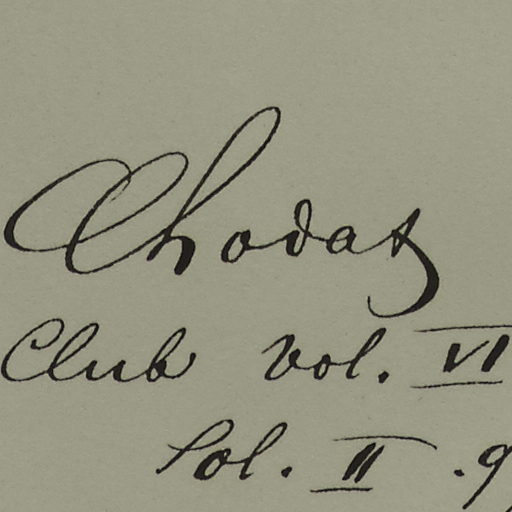 Chodat
Club vol. VI
Sol. II . 9